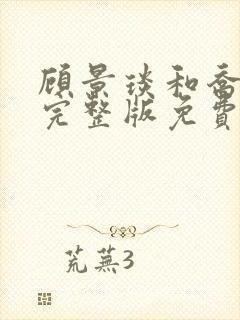 顾景琰和乔
完整版免費
荒蕪3